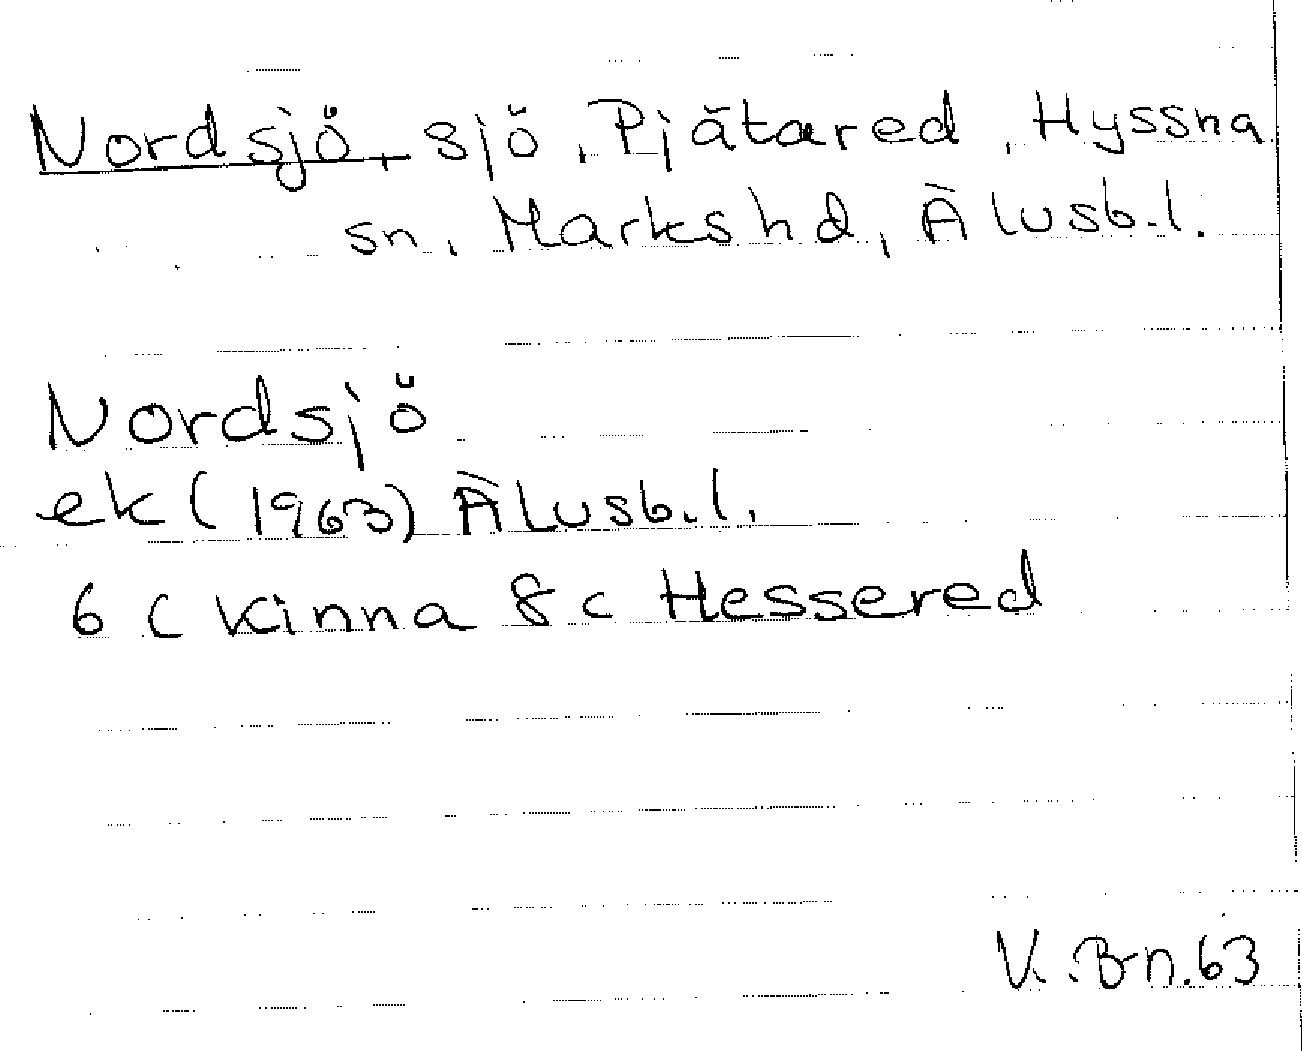 Nordsjö, sjö, Pjätared, Hyssna
sn, Marks hd, Älvsb.l.
Nordsjö
ek (1963) Älvsb.l.
6 C Kinna 8 c Hessered
V. B-n. 63